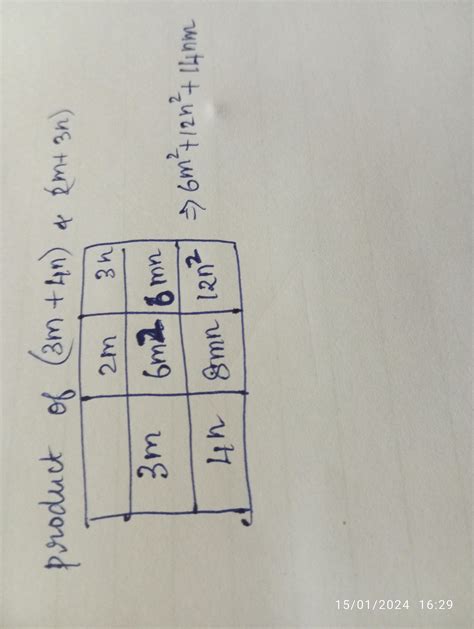 product of (3m + 4n) & (2m + 3n)
2m 3n
3m 6m2 6mn
4n 8mn 12n²
⇒ 6m² + 12n² + 14nm
15/01/2024 16:29